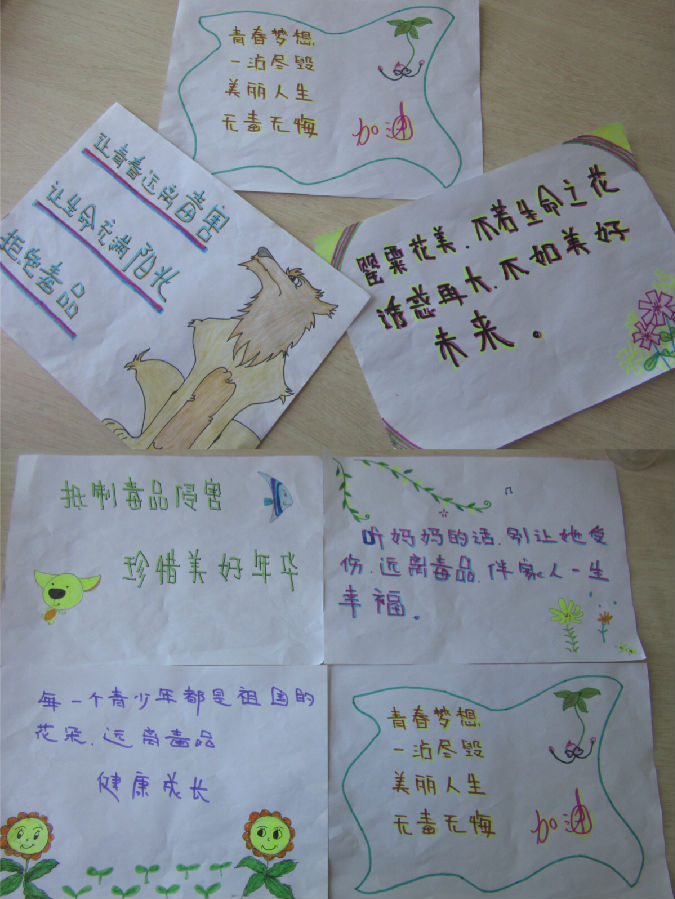 青春梦想
一沾尽毁
美丽人生
无毒无悔
加油
让青春远离毒害
让生命充满阳光
拒绝毒品
罂粟花美.不若生命之花
诱惑再大.不如美好
未来。
抵制毒品侵害
珍惜美好年华
听妈妈的话.别让她受
伤.远离毒品.伴家人一生
幸福。
每一个青少年都是祖国的
花朵.远离毒品
健康成长
青春梦想
一沾尽毁
美丽人生
无毒无悔
加油